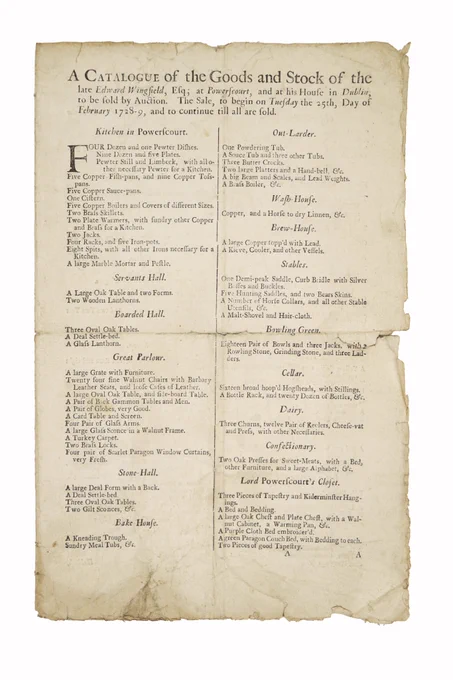 A CATALOGUE of the Goods and Stock of the
late Edward Wingfield, Esq; at Powerscourt, and at his House in Dublin,
to be sold by Auction. The Sale, to begin on Tuesday the 25th, Day of
February 1728-9, and to continue till all are sold.
Kitchen in Powerscourt.
FOUR Dozen and one Pewter Dishes.
Nine Dozen and five Plates.
Pewter Still and Limbeck, with all o-
ther necessary Pewter for a Kitchen.
Five Copper Fish-pans, and nine Copper Tuss-
pans.
Five Copper Sauce-pans.
One Cistern.
Five Copper Boilers and Covers of different Sizes.
Two Brass Skillets.
Two Plate Warmers, with sundry other Copper
and Brass for a Kitchen.
Two Jacks.
Four Racks, and five Iron-pots.
Eight Spits, with all other Irons necessary for a
Kitchen.
A large Marble Morter and Pestle.
Servants Hall.
A Large Oak Table and two Forms.
Two Wooden Lanthorns.
Boarded Hall.
Three Oval Oak Tables.
A Deal Settle-bed.
A Glass Lanthorn.
Great Parlour.
A large Grate with Furniture.
Twenty four fine Walnut Chairs with Barbary
Leather Seats, and loose Cases of Leather.
A large Oval Oak Table, and side-board Table.
A Pair of Back Gammon Tables and Men.
A Pair of Globes, very Good.
A Card Table and Screen.
Four Pair of Glass Arms.
A large Glass Sconce in a Walnut Frame.
A Turkey Carpet.
Two Brass Locks.
Four pair of Scarlet Paragon Window Curtains,
very Fresh.
Stone-Hall.
A large Deal Form with a Back.
A Deal Settle-bed
Three Oval Oak Tables.
Two Gilt Sconces, &c.
Bake House.
A Kneading Trough.
Sundry Meal Tubs, &c.
Out-Larder.
One Powdering Tub.
A Souce Tub and three other Tubs.
Three Butter Crocks.
Two large Platters and a Hand-bell, &c.
A big Beam and Scales, and Lead Weights.
A Brass Boiler, &c.
Wash-House.
Copper, and a Horse to dry Linnen, &c.
Brew-House.
A large Copper topp'd with Lead.
A Kieve, Cooler, and other Vessels.
Stables.
One Demi-peak Saddle, Curb Bridle with Silver
Bosses and Buckles.
Five Hunting Saddles, and two Bears Skins.
A Number of Horse Collars, and all other Stable
Utensils, &c.
A Malt-Shovel and Hair-cloth.
Bowling Green.
Eighteen Pair of Bowls and three Jacks, with a
Rowling Stone, Grinding Stone, and three Lad-
ders.
Cellar.
Sixteen broad hoop'd Hogsheads, with Stillings.
A Bottle Rack, and twenty Dozen of Bottles, &c.
Dairy.
Three Churns, twelve Pair of Keelers, Cheese-vat
and Press, with other Necessaries.
Confectionary.
Two Oak Presses for Sweet-Meats, with a Bed,
other Furniture, and a large Alphabet, &c.
Lord Powerscourt's Closet.
Three Pieces of Tapestry and Kidderminster Hang-
ings.
A Bed and Bedding.
A large Oak Chest and Plate Chest, with a Wal-
nut Cabinet, a Warming Pan, &c.
A Purple Cloth Bed embroider'd.
A green Paragon Couch Bed, with Bedding to each.
Two Pieces of good Tapestry.
A A